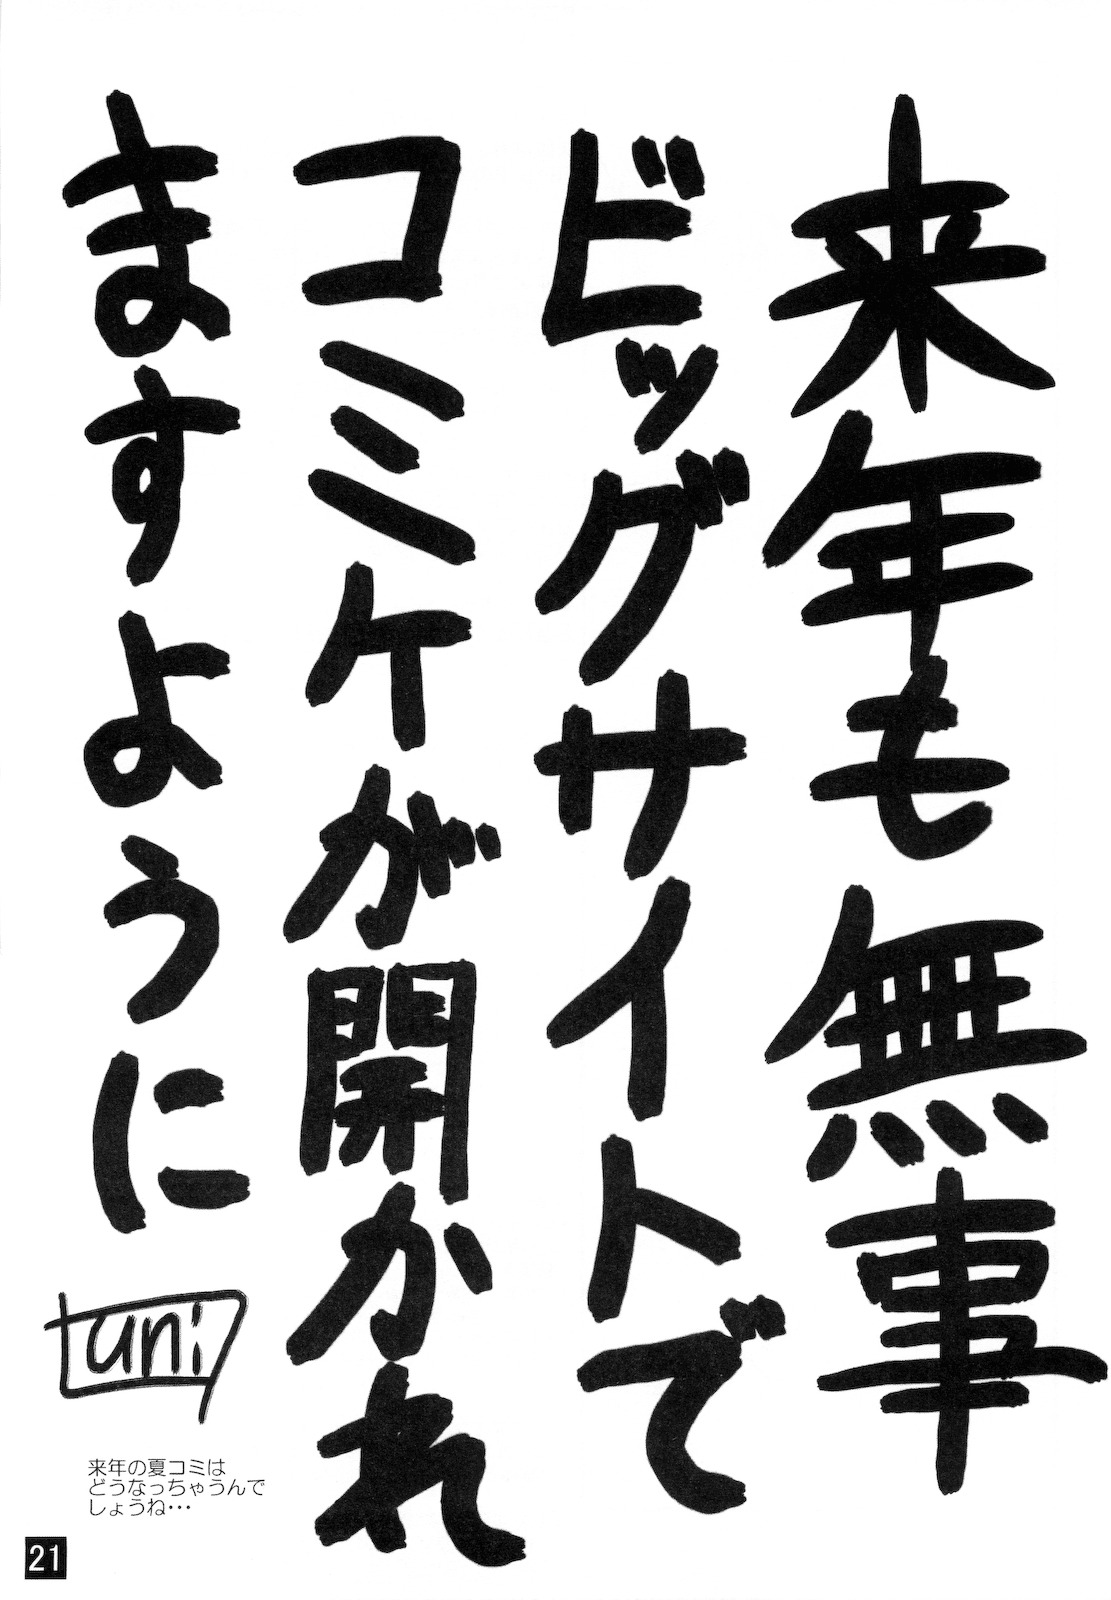 来年も無事
ビッグサイトで
コミケが開かれ
ますように
tani
来年の夏コミは
どうなっちゃうんで
しょうね・・・
21